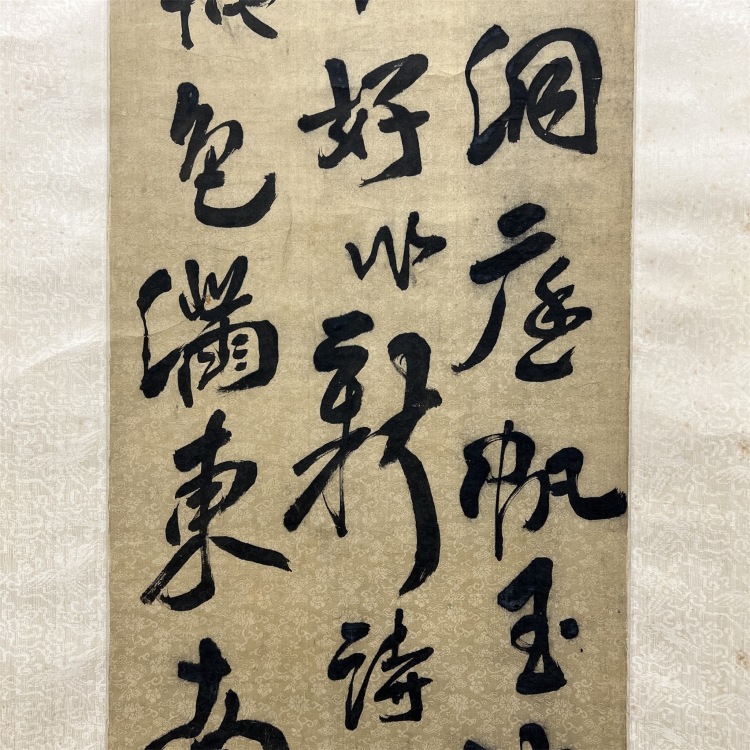 洞庭帆玉
好作新詩
色滿東南